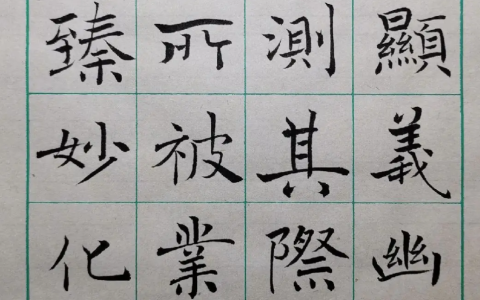 顯義幽
測其際
所被業
臻妙化